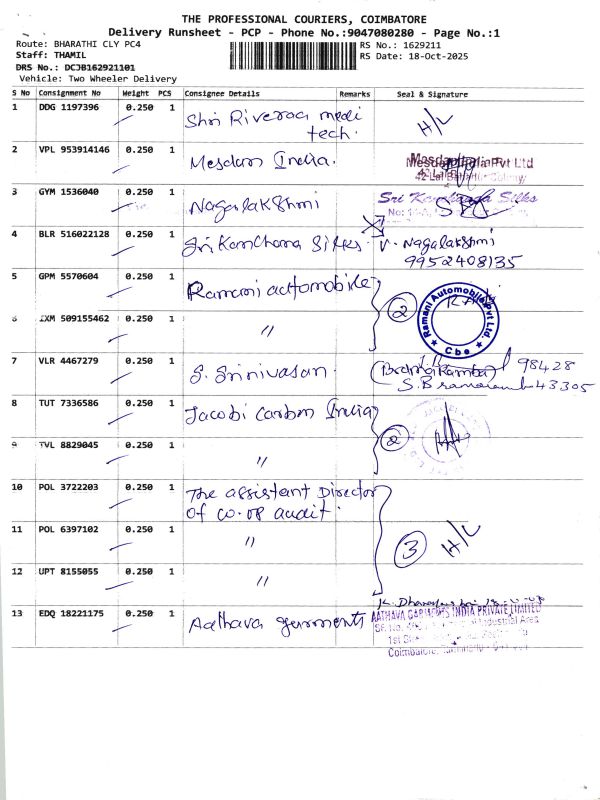 THE PROFESSIONAL COURIERS, COIMBATORE
Delivery Runsheet - PCP - Phone No.:9047080280 - Page No.:1
Route: BHARATHI CLY PC4 RS No.: 1629211
Staff: THAMIL RS Date: 18-Oct-2025
DRS No.: DCJB162921101
Vehicle: Two Wheeler Delivery
S No Consignment No Weight PCS Consignee Details Remarks Seal & Signature
1 DDG 1197396 0.250 1 Shri Riveraa medi tech. H/L
2 VPL 953914146 0.250 1 Mesdan India. Mesdan India Pvt Ltd
3 GYM 1536040 0.250 1 Nagalakshmi Sri Kanchana Silks
4 BLR 516022128 0.250 1 Sri Kanchana Silks. V. Nagalakshmi
9952408135
5 GPM 5570604 0.250 1 Ramani automobile 2 Ramani Automobile Pvt Ltd Cbe
6 IXM 509155462 0.250 1 "
7 VLR 4467279 0.250 1 S. Srinivasan. 98428
43305
8 TUT 7336586 0.250 1 Jacobi Carbon India 2
9 TVL 8829045 0.250 1 "
10 POL 3722203 0.250 1 The assistant Director
of co.op audit.
11 POL 6397102 0.250 1 " 3 H/L
12 UPT 8155055 0.250 1 "
13 EDQ 18221175 0.250 1 Aathava garments AATHAVA GARMENTS INDIA PRIVATE LIMITED
Industrial Area
1st
Coimbatore